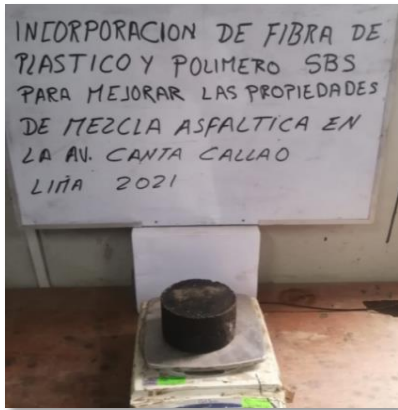 INCORPORACION DE FIBRA DE
PLASTICO Y POLIMERO SBS
PARA MEJORAR LAS PROPIEDADES
DE MEZCLA ASFALTICA EN
LA AV. CANTA CALLAO
LIMA 2021